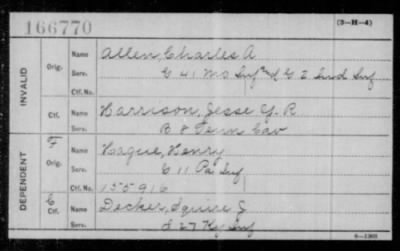 166770
(3-H-4)
INVALID
Orig.
Name Allen, Charles A
Serv. G 41 Mo Inf and G 2 Ind Inf
Ctf. No.
Ctf.
Name Harrison, Jesse Y. R
Serv. B 8 Tenn Cav
DEPENDENT
F
Orig.
Name Hague, Henry
Serv. C 11 Pa Inf
Ctf. No. 155916
C
Ctf.
Name Decker, Squire J
Serv. I 27 Ky Inf